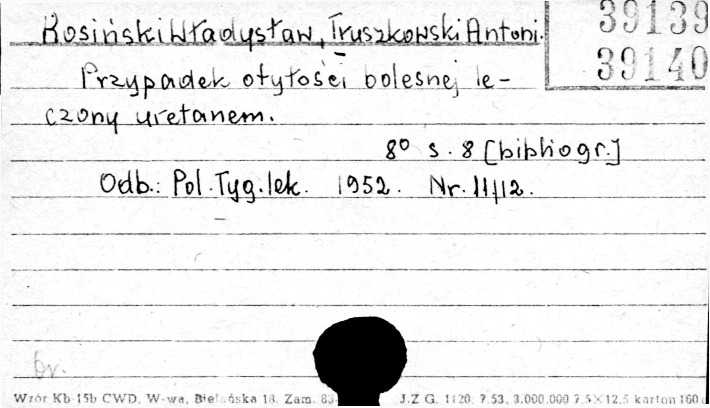 Rosiński Władysław, Truszkowski Antoni.
39139
39140
Przypadek otyłości bolesnej le-
czony uretanem.
8° s. 8 [bibliogr.]
Odb.: Pol. Tyg. lek. 1952. Nr. 11/12.
br.
Wzór Kb-15b CWD, W-wa, Bielańska 18. Zam. 83 J.Z G. 1120; 7.53, 3.000.000 7,5×12,5 karton 160 g